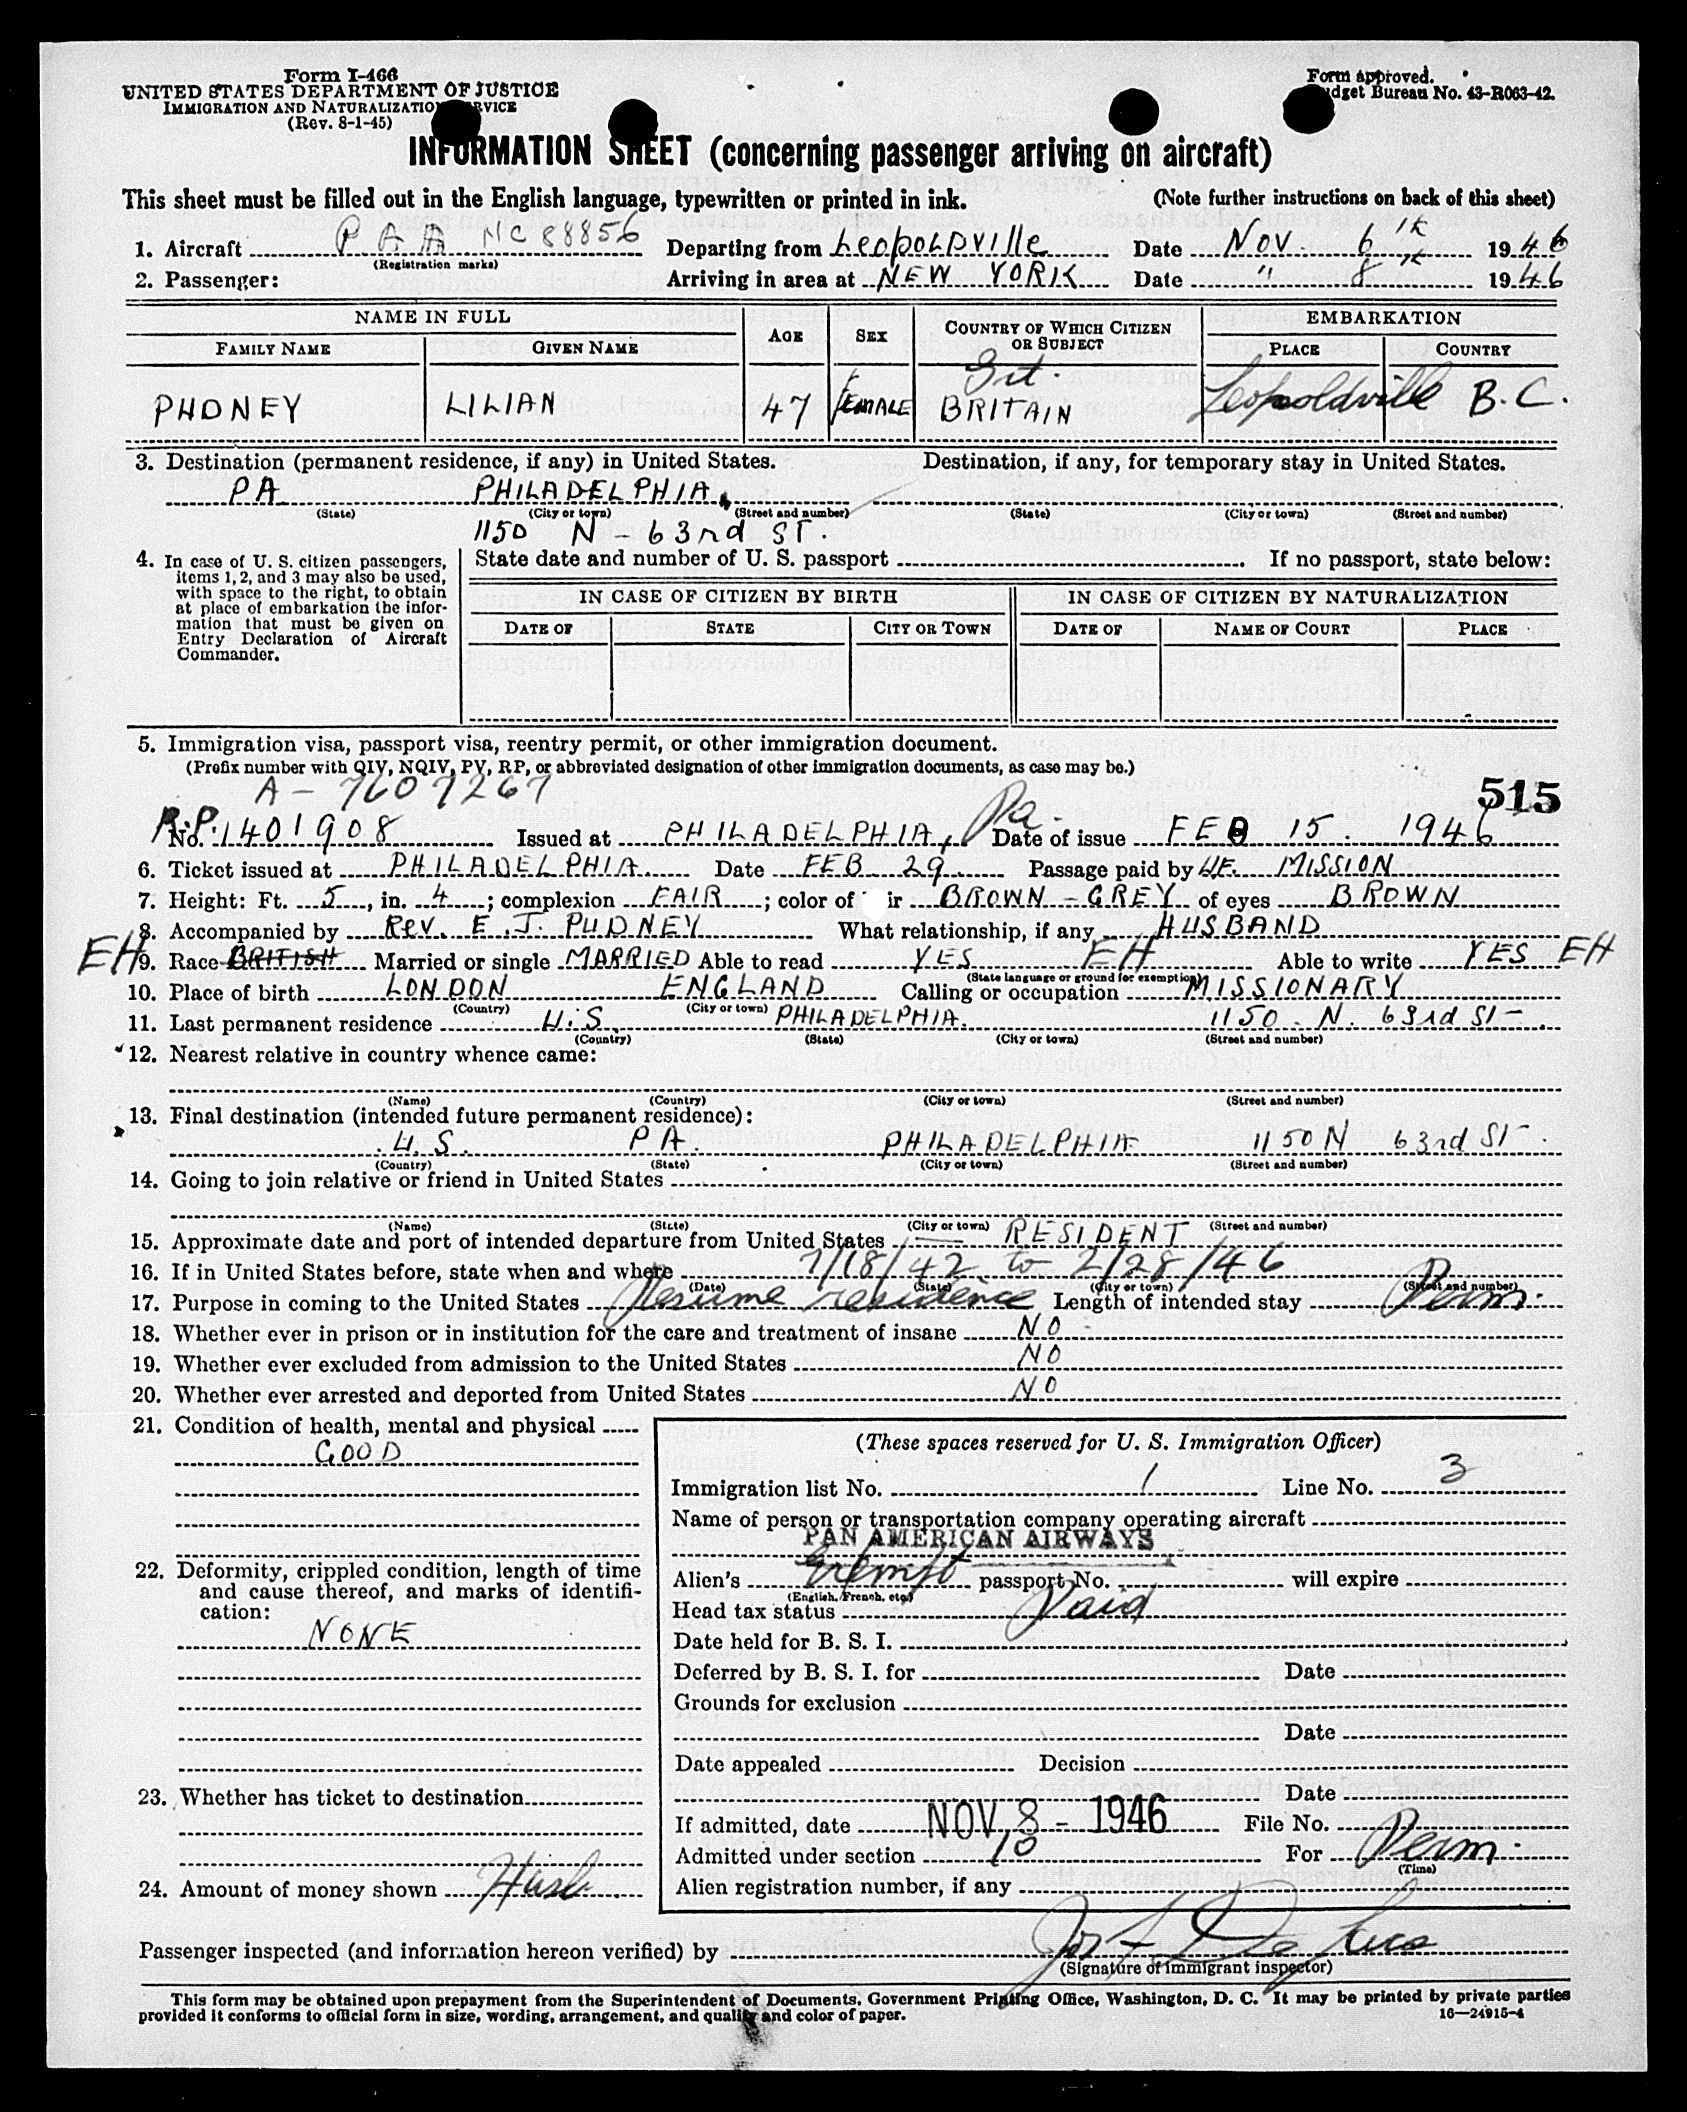 Form I-466
UNITED STATES DEPARTMENT OF JUSTICE
IMMIGRATION AND NATURALIZATION SERVICE
(Rev. 8-1-45)
Form approved.
Budget Bureau No. 43-R063-42.
INFORMATION SHEET (concerning passenger arriving on aircraft)
This sheet must be filled out in the English language, typewritten or printed in ink. (Note further instructions on back of this sheet)
1. Aircraft PAA NC 88856 Departing from LEOPOLDVILLE Date NOV. 6 1946
(Registration marks)
2. Passenger: Arriving in area at NEW YORK Date " 8 1946
NAME IN FULL AGE SEX COUNTRY OF WHICH CITIZEN OR SUBJECT EMBARKATION
FAMILY NAME GIVEN NAME PLACE COUNTRY
Grt.
PUDNEY LILIAN 47 FEMALE BRITAIN Leopoldville B.C.
3. Destination (permanent residence, if any) in United States. Destination, if any, for temporary stay in United States.
PA PHILADELPHIA
(State) (City or town) (Street and number) (State) (City or town) (Street and number)
1150 N - 63rd ST.
4. In case of U. S. citizen passengers, items 1, 2, and 3 may also be used, with space to the right, to obtain at place of embarkation the information that must be given on Entry Declaration of Aircraft Commander.
State date and number of U. S. passport If no passport, state below:
IN CASE OF CITIZEN BY BIRTH IN CASE OF CITIZEN BY NATURALIZATION
DATE OF STATE CITY OR TOWN DATE OF NAME OF COURT PLACE
5. Immigration visa, passport visa, reentry permit, or other immigration document.
(Prefix number with QIV, NQIV, PV, RP, or abbreviated designation of other immigration documents, as case may be.)
A-7607267
515
R.P. No. 1401908 Issued at PHILADELPHIA, Pa. Date of issue FEB 15. 1946
6. Ticket issued at PHILADELPHIA. Date FEB 29. Passage paid by U.F. MISSION
7. Height: Ft. 5, in. 4; complexion FAIR; color of hair BROWN-GREY of eyes BROWN
8. Accompanied by Rev. E. J. PUDNEY What relationship, if any HUSBAND
EH 9. Race BRITISH Married or single MARRIED Able to read YES EH Able to write YES EH
(State language or ground for exemption)
10. Place of birth LONDON ENGLAND Calling or occupation MISSIONARY
(Country) (City or town)
11. Last permanent residence U.S. PHILADELPHIA. 1150. N. 63rd ST-
(Country) (State) (City or town) (Street and number)
12. Nearest relative in country whence came:
(Name) (Country) (City or town) (Street and number)
13. Final destination (intended future permanent residence):
U.S. PA. PHILADELPHIA 1150 N 63rd ST-.
(Country) (State) (City or town) (Street and number)
14. Going to join relative or friend in United States
(Name) (State) (City or town) (Street and number)
15. Approximate date and port of intended departure from United States — RESIDENT
16. If in United States before, state when and where 7/18/42 to 2/28/46
(Date) (State) (City or town) (Street and number)
17. Purpose in coming to the United States Resume residence Length of intended stay Perm.
18. Whether ever in prison or in institution for the care and treatment of insane NO
19. Whether ever excluded from admission to the United States NO
20. Whether ever arrested and deported from United States NO
21. Condition of health, mental and physical
GOOD
22. Deformity, crippled condition, length of time and cause thereof, and marks of identification:
NONE
23. Whether has ticket to destination
24. Amount of money shown Husb.
(These spaces reserved for U. S. Immigration Officer)
Immigration list No. 1 Line No. 3
Name of person or transportation company operating aircraft
PAN AMERICAN AIRWAYS
Alien's Exempt passport No. will expire
(English, French, etc.)
Head tax status Paid
Date held for B. S. I.
Deferred by B. S. I. for Date
Grounds for exclusion
Date
Date appealed Decision
Date
If admitted, date NOV 8 - 1946 File No.
Admitted under section 10 For Perm.
(Time)
Alien registration number, if any
Passenger inspected (and information hereon verified) by
(Signature of immigrant inspector)
This form may be obtained upon prepayment from the Superintendent of Documents, Government Printing Office, Washington, D. C. It may be printed by private parties
provided it conforms to official form in size, wording, arrangement, and quality and color of paper. 16—24915-4